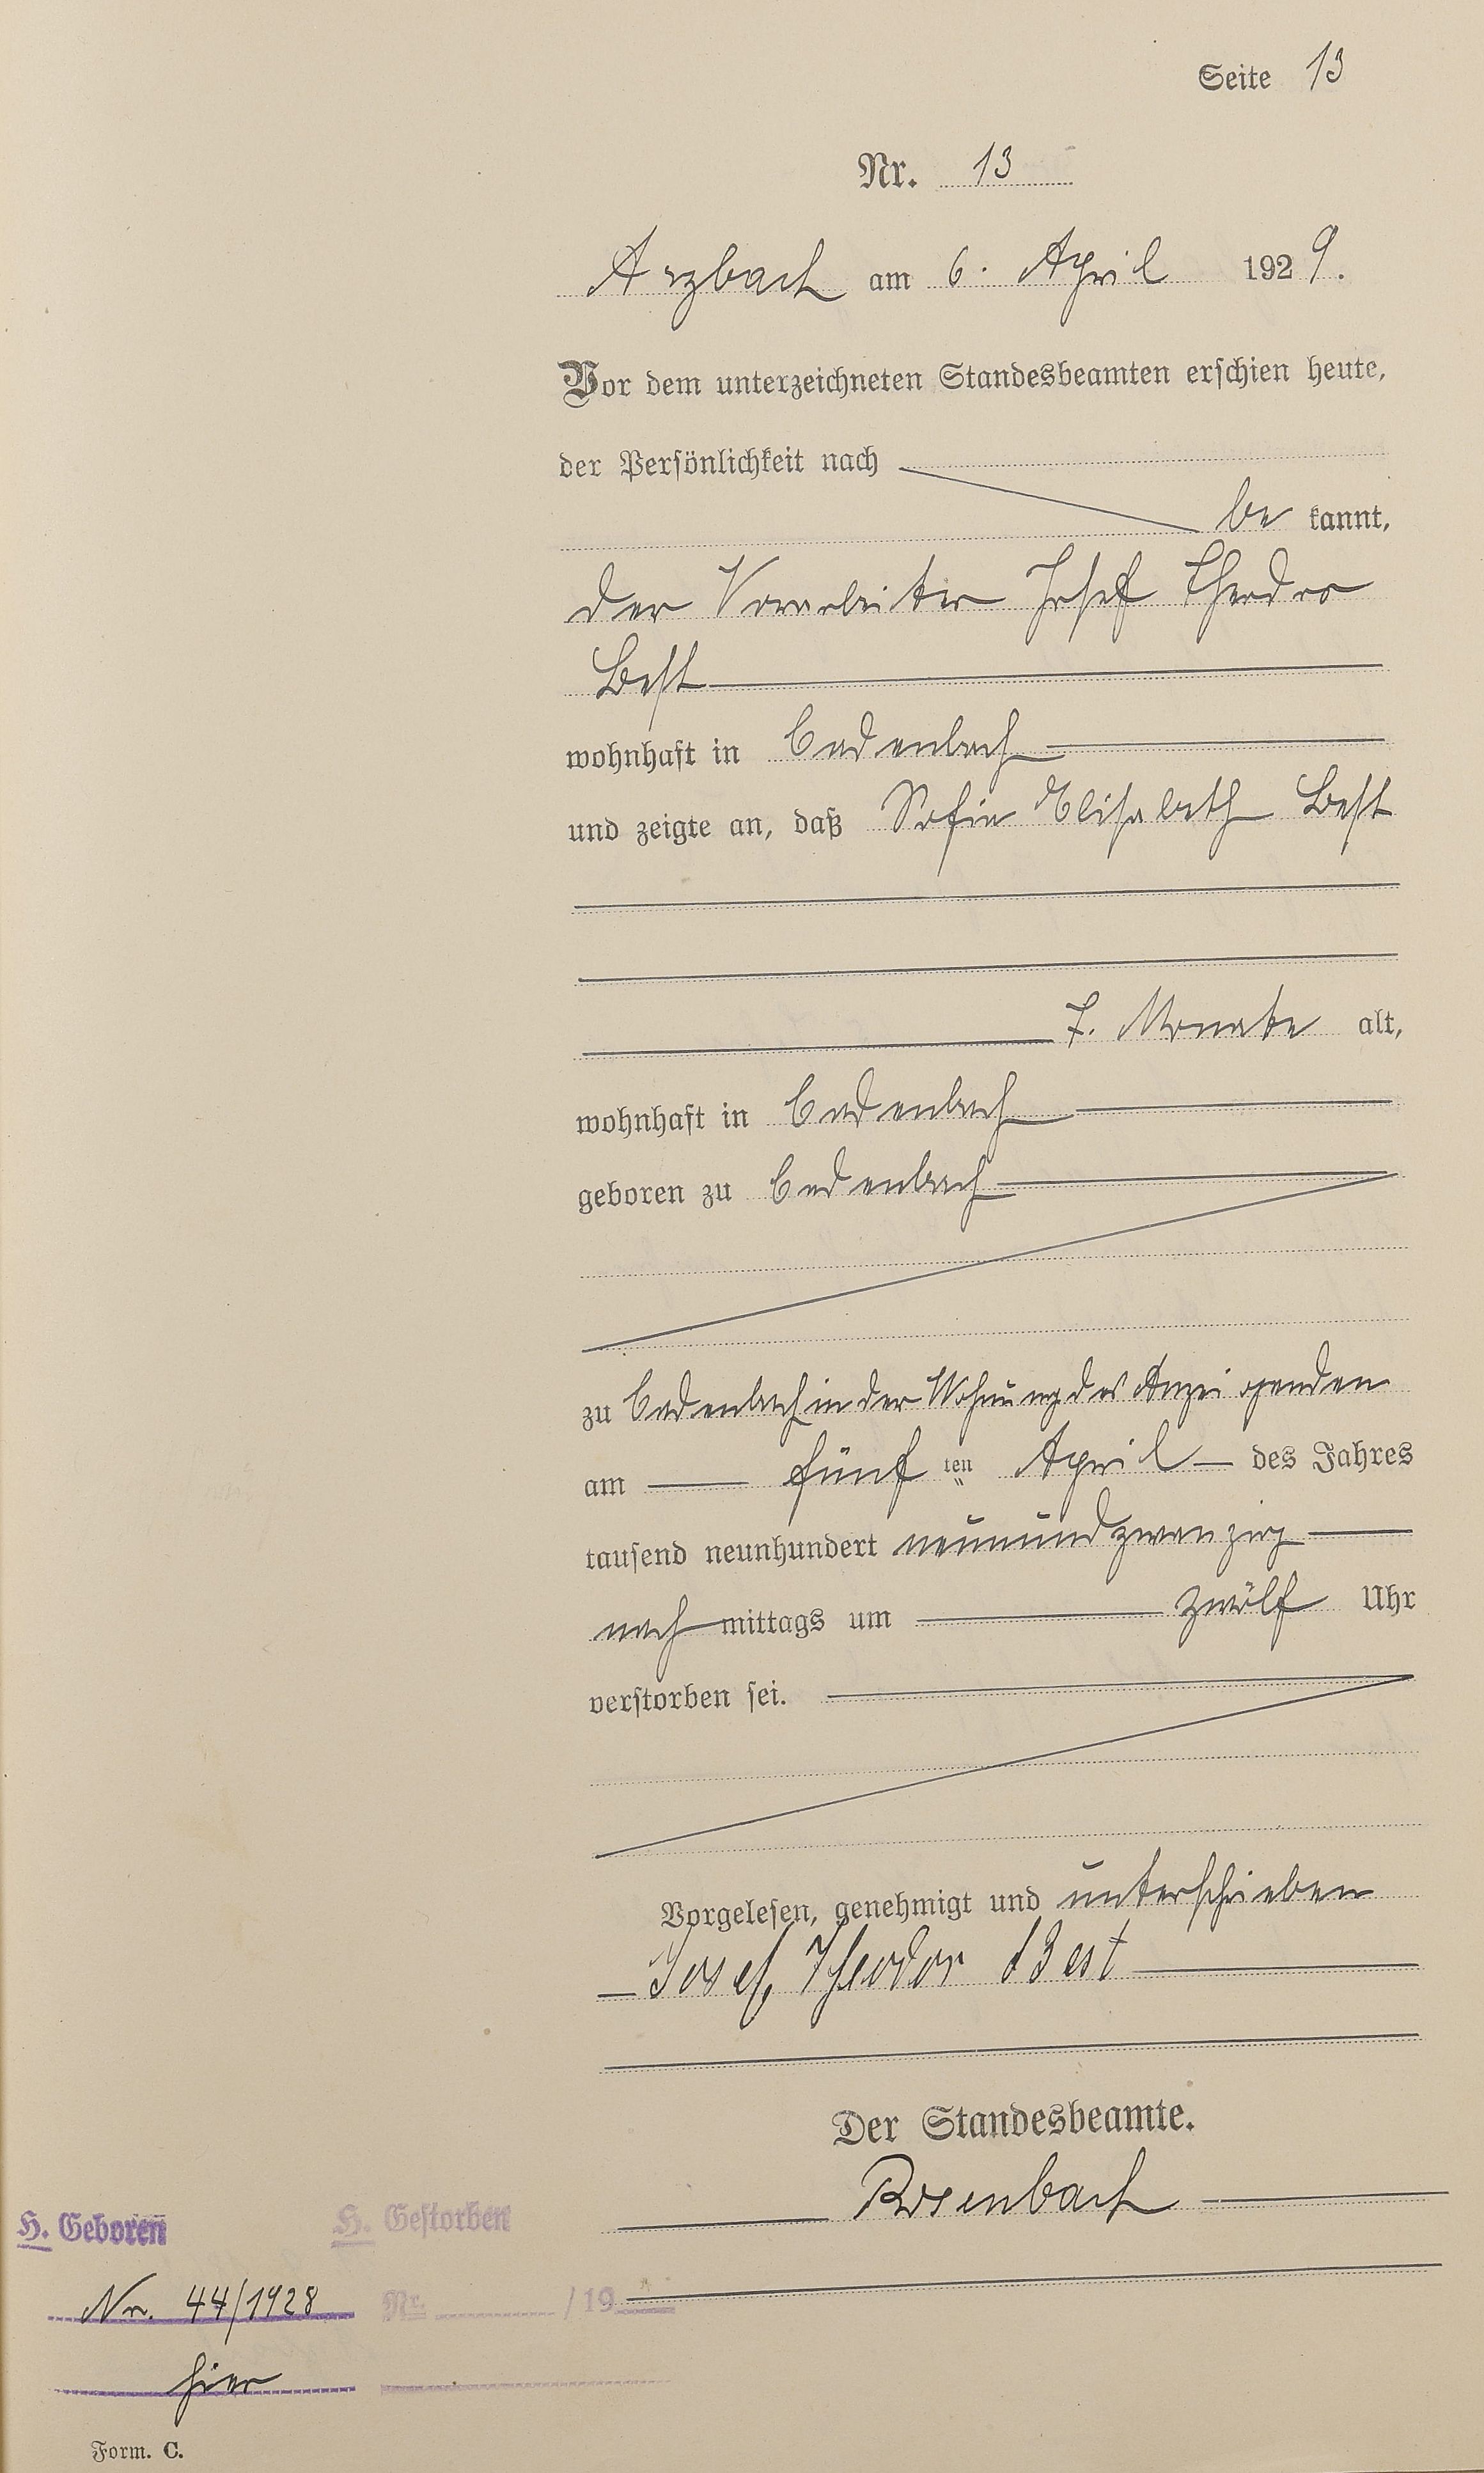 Seite 13
Nr. 13
Arzbach am 6. April 1929.
Vor dem unterzeichneten Standesbeamten erschien heute,
der Persönlichkeit nach
be kannt,
der Vorarbeiter Josef Theodor
Best
wohnhaft in Cadenbach
und zeigte an, daß Sofie Elisabeth Best
7. Monate alt,
wohnhaft in Cadenbach
geboren zu Cadenbach
zu Cadenbach in der Wohnung des Anzeigenden
am fünf ten April des Jahres
tausend neunhundert neunundzwanzig
nach mittags um zwölf Uhr
verstorben sei.
Vorgelesen, genehmigt und unterschrieben
Josef Theodor Best
Der Standesbeamte.
Rosenbach
H. Geboren H. Gestorben
Nr. 44/1928 Nr. /19
hier
Form. C.